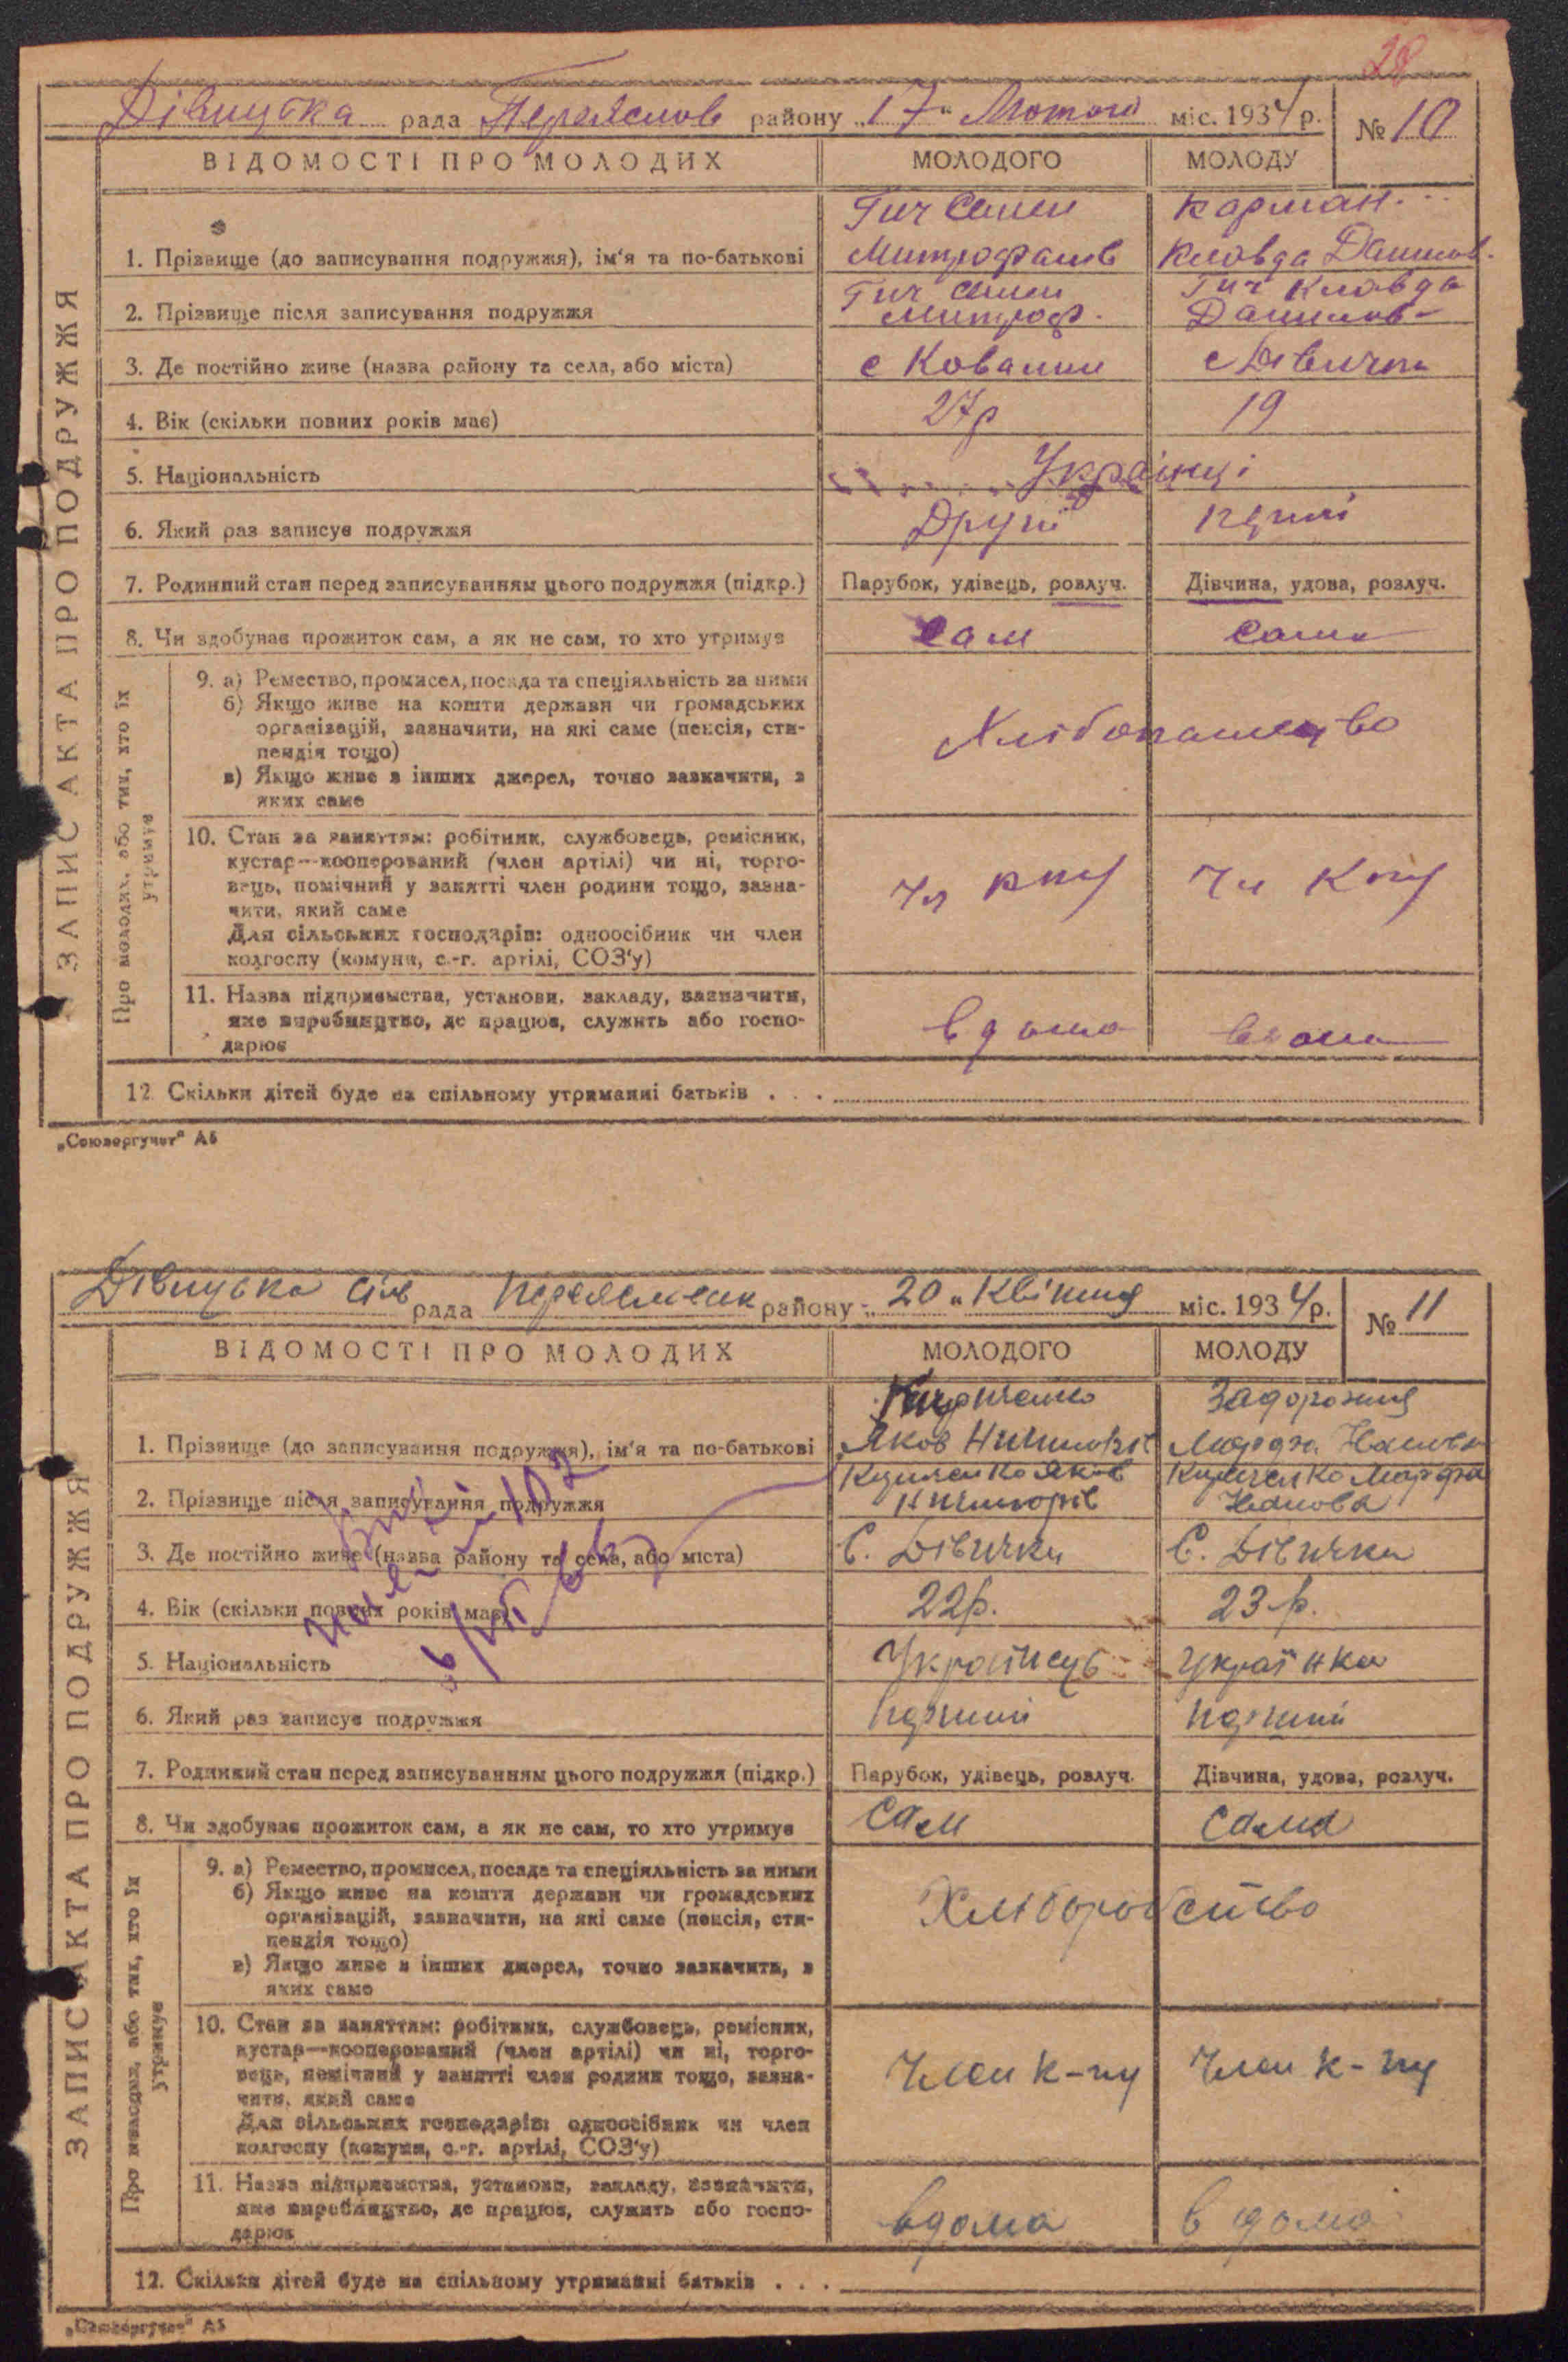 28
Дівицька рада Переяслов району „17“ Лютого міс. 1934 р. № 10
ЗАПИС АКТА ПРО ПОДРУЖЖЯ
ВІДОМОСТІ ПРО МОЛОДИХ МОЛОДОГО МОЛОДУ
Гич Семен Карман
1. Прізвище (до записування подружжя), ім'я та по-батькові Митрофанов Клавда Данилов.
Гич Семен Гич Клавда
2. Прізвище після записування подружжя Митроф. Данилов-
3. Де постійно живе (назва району та села, або міста) с Ковалин с Дівички
4. Вік (скільки повних років має) 27р 19
5. Національність Українці
6. Який раз записує подружжя Другий перший
7. Родинний стан перед записуванням цього подружжя (підкр.) Парубок, удівець, розлуч. Дівчина, удова, розлуч.
8. Чи здобуває прожиток сам, а як не сам, то хто утримує Сам Сама
Про молодих, або тих, хто їх утримує
9. а) Ремество, промисел, посада та спеціяльність за ними
б) Якщо живе на кошти держави чи громадських
організацій, зазначити, на які саме (пенсія, сти-
пендія тощо) Хлібопашество
в) Якщо живе з інших джерел, точно зазначити, з
яких саме
10. Стан за заняттям: робітник, службовець, ремісник,
кустар—кооперований (член артілі) чи ні, торго-
вець, помічний у занятті член родини тощо, зазна- Чл кпу Чл кпу
чити, який саме
Для сільських господарів: одноосібник чи член
колгоспу (комуни, с.-г. артілі, СОЗ'у)
11. Назва підприємства, установи, закладу, зазначити,
яке виробництво, де працює, служить або госпо- вдома вдома
дарює
12. Скільки дітей буде на спільному утриманні батьків . . .
„Союзоргучет“ А5
Дівицька сіл рада Переяславськ району „20“ Квітня міс. 1934 р. № 11
ЗАПИС АКТА ПРО ПОДРУЖЖЯ
ВІДОМОСТІ ПРО МОЛОДИХ МОЛОДОГО МОЛОДУ
Кириченко Задорожня
1. Прізвище (до записування подружжя), ім'я та по-батькові Яков Марфа
2. Прізвище після записування подружжя Яків Марфа
3. Де постійно живе (назва району та села, або міста) С. Дівички С. Дівички
4. Вік (скільки повних років має) 22р. 23 р.
5. Національність Українець Українка
6. Який раз записує подружжя перший перший
7. Родинний стан перед записуванням цього подружжя (підкр.) Парубок, удівець, розлуч. Дівчина, удова, розлуч.
8. Чи здобуває прожиток сам, а як не сам, то хто утримує Сам Сама
Про молодих, або тих, хто їх утримує
9. а) Ремество, промисел, посада та спеціяльність за ними
б) Якщо живе на кошти держави чи громадських
організацій, зазначити, на які саме (пенсія, сти- Хліборобство
пендія тощо)
в) Якщо живе з інших джерел, точно зазначити, з
яких саме
10. Стан за заняттям: робітник, службовець, ремісник,
кустар—кооперований (член артілі) чи ні, торго-
вець, помічний у занятті член родини тощо, зазна- Член к-пу Член к-пу
чити, який саме
Для сільських господарів: одноосібник чи член
колгоспу (комуни, с.-г. артілі, СОЗ'у)
11. Назва підприємства, установи, закладу, зазначити,
яке виробництво, де працює, служить або госпо- вдома в дома
дарює
12. Скільки дітей буде на спільному утриманні батьків . . .
„Союзоргучет“ А5